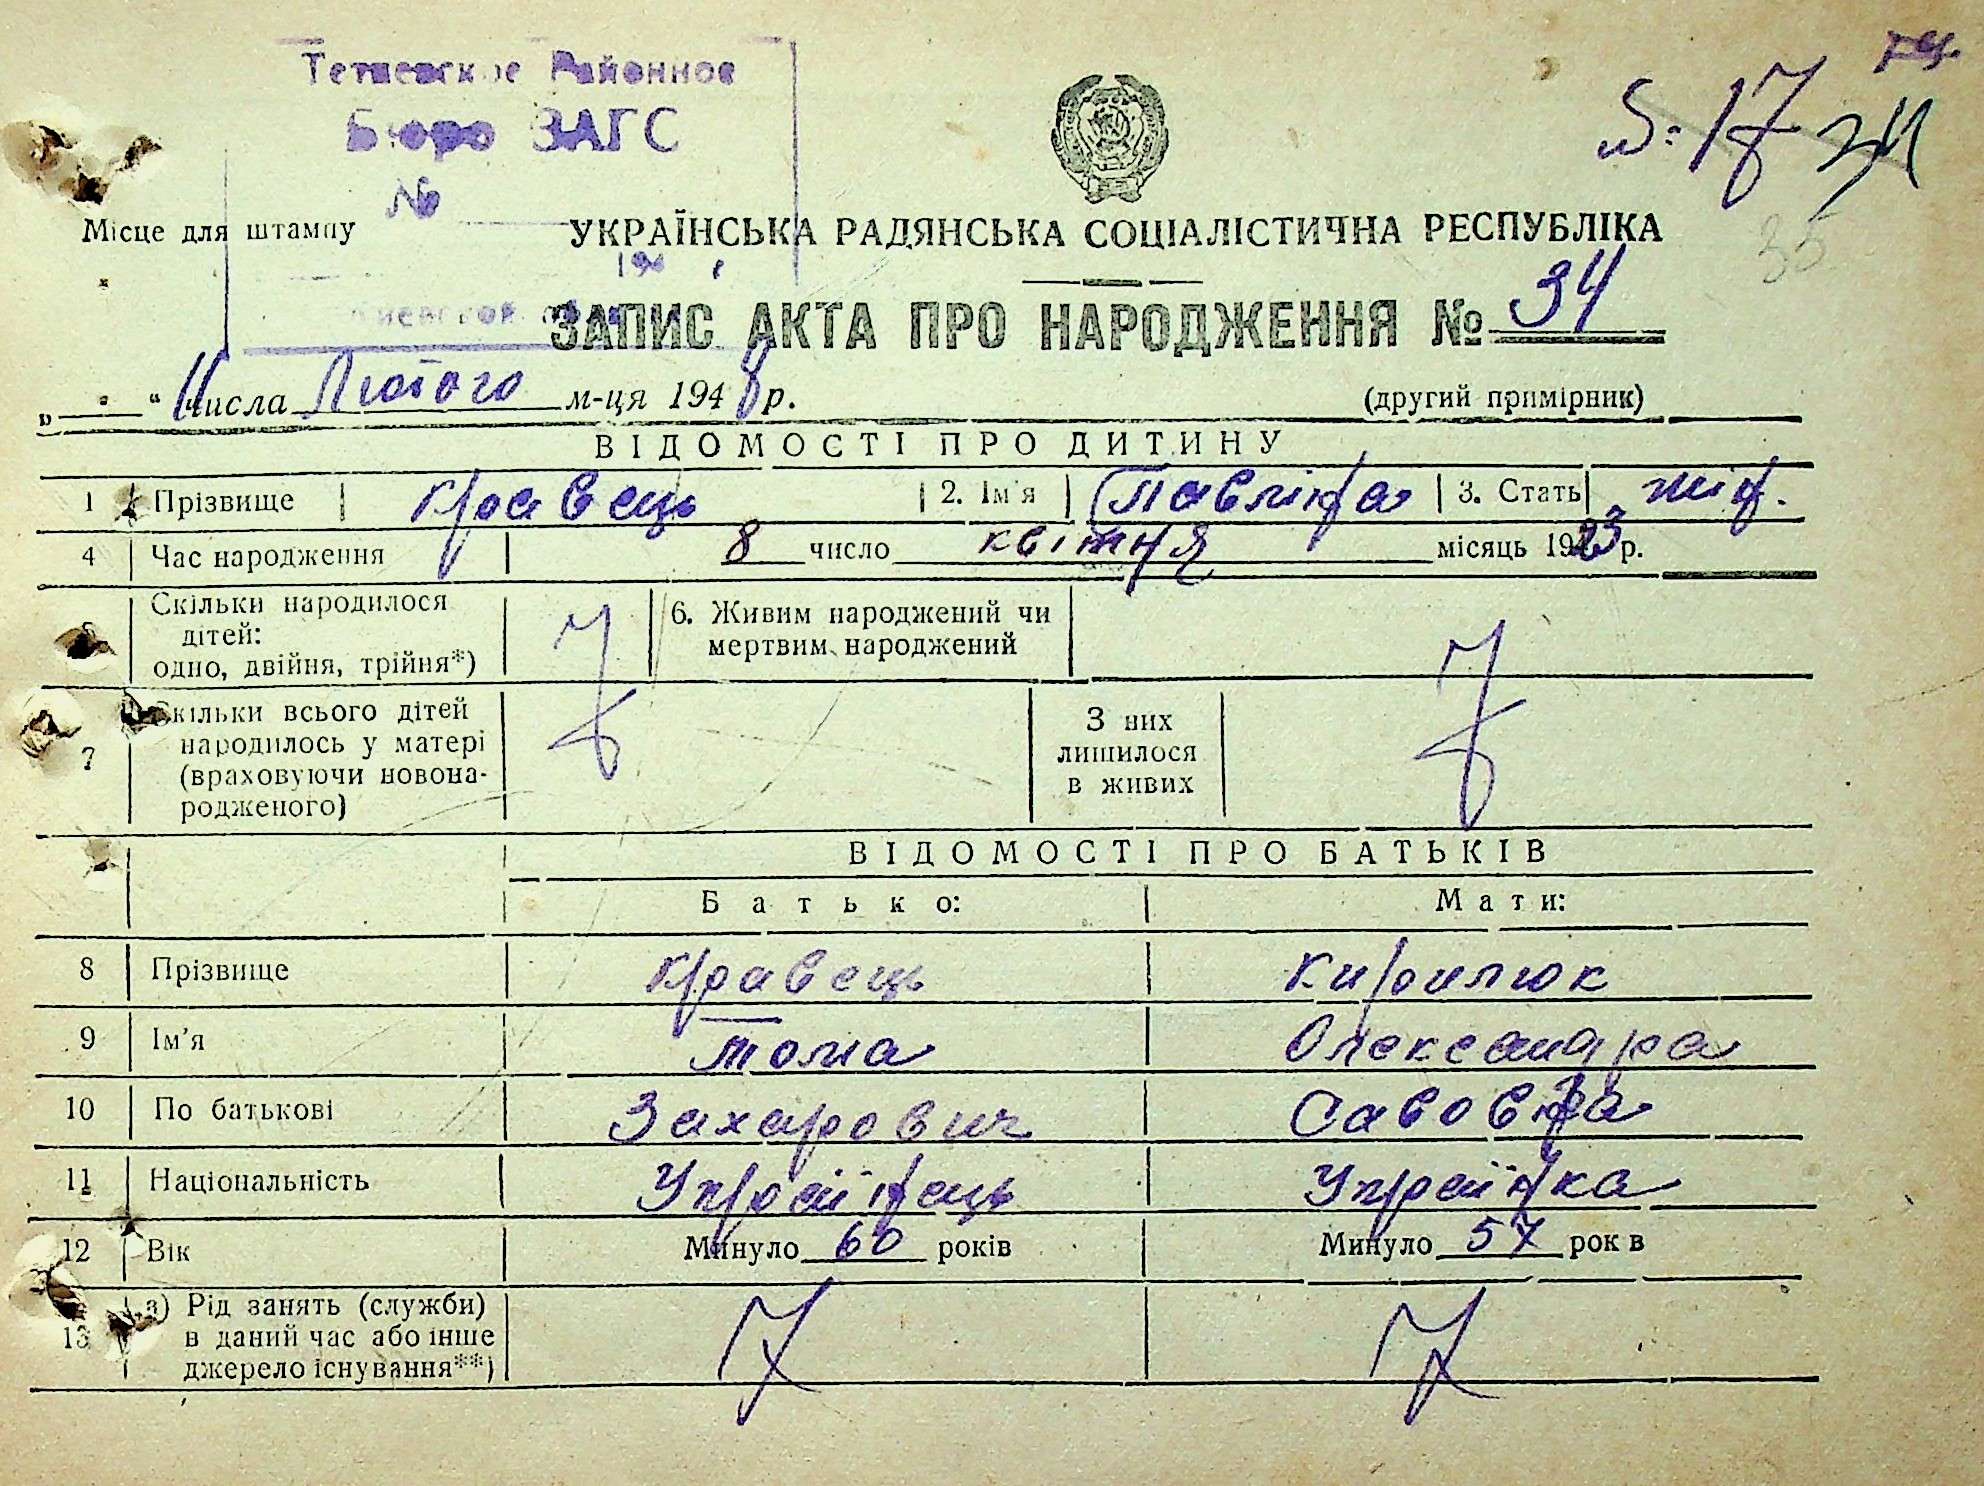 Тетиевское Районное
Бюро ЗАГС
№
194
№: 17
34
35
Місце для штампу
УКРАЇНСЬКА РАДЯНСЬКА СОЦІАЛІСТИЧНА РЕСПУБЛІКА
Киевской
ЗАПИС АКТА ПРО НАРОДЖЕННЯ № 34
„ “ 11 числа Лютого м-ця 1948 р. (другий примірник)
ВІДОМОСТІ ПРО ДИТИНУ
1 Прізвище Кравець 2. Ім'я Павліна 3. Стать жін.
4 Час народження 8 число квітня місяць 1923 р.
5 Скільки народилося дітей: одно, двійня, трійня*) 6. Живим народжений чи мертвим народжений
7 Скільки всього дітей народилось у матері (враховуючи новонародженого) З них лишилося в живих
ВІДОМОСТІ ПРО БАТЬКІВ
Батько: Мати:
8 Прізвище Кравець Кирилюк
9 Ім'я Тома Олександра
10 По батькові Захарович Савовна
11 Національність Українець Українка
12 Вік Минуло 60 років Минуло 57 рок в
13 а) Рід занять (служби) в даний час або інше джерело існування**)